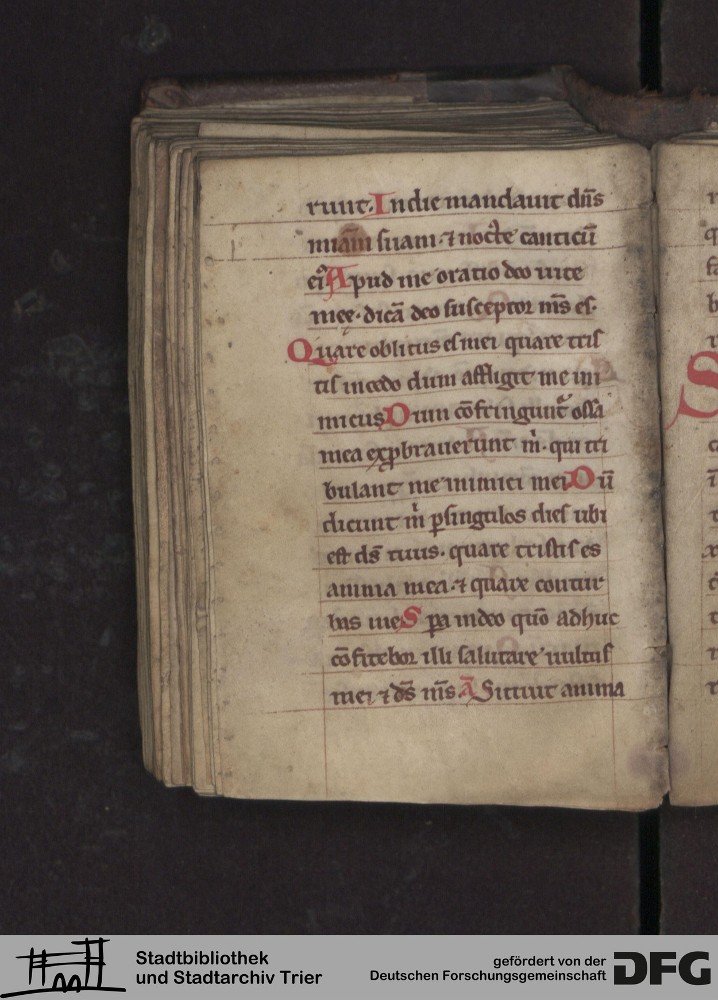 runt. In die mandauit dn̄s
mīam suam. ⁊ nocte canticū
ei᷒ Apud me oratio deo uite
mee. dicā deo susceptor m̄s es.
Quare oblitus es mei quare tris
tis incedo dum affligit me ini
micus Dum cōfringunt᷑ ossa
mea exꝓbrauerunt m̄. qui tri
bulant me inimici mei Dū
dicunt m̄ ꝑsingulos dies ubi
est ds̄ tuus. quare tristis es
anima mea. ⁊ quare contur
bas me Spa indeo quō adhuc
cōfitebor illi salutare uultus
mei ⁊ ds̄ m̄s A Sitiuit anima
Stadtbibliothek
und Stadtarchiv Trier
gefördert von der
Deutschen Forschungsgemeinschaft
DFG